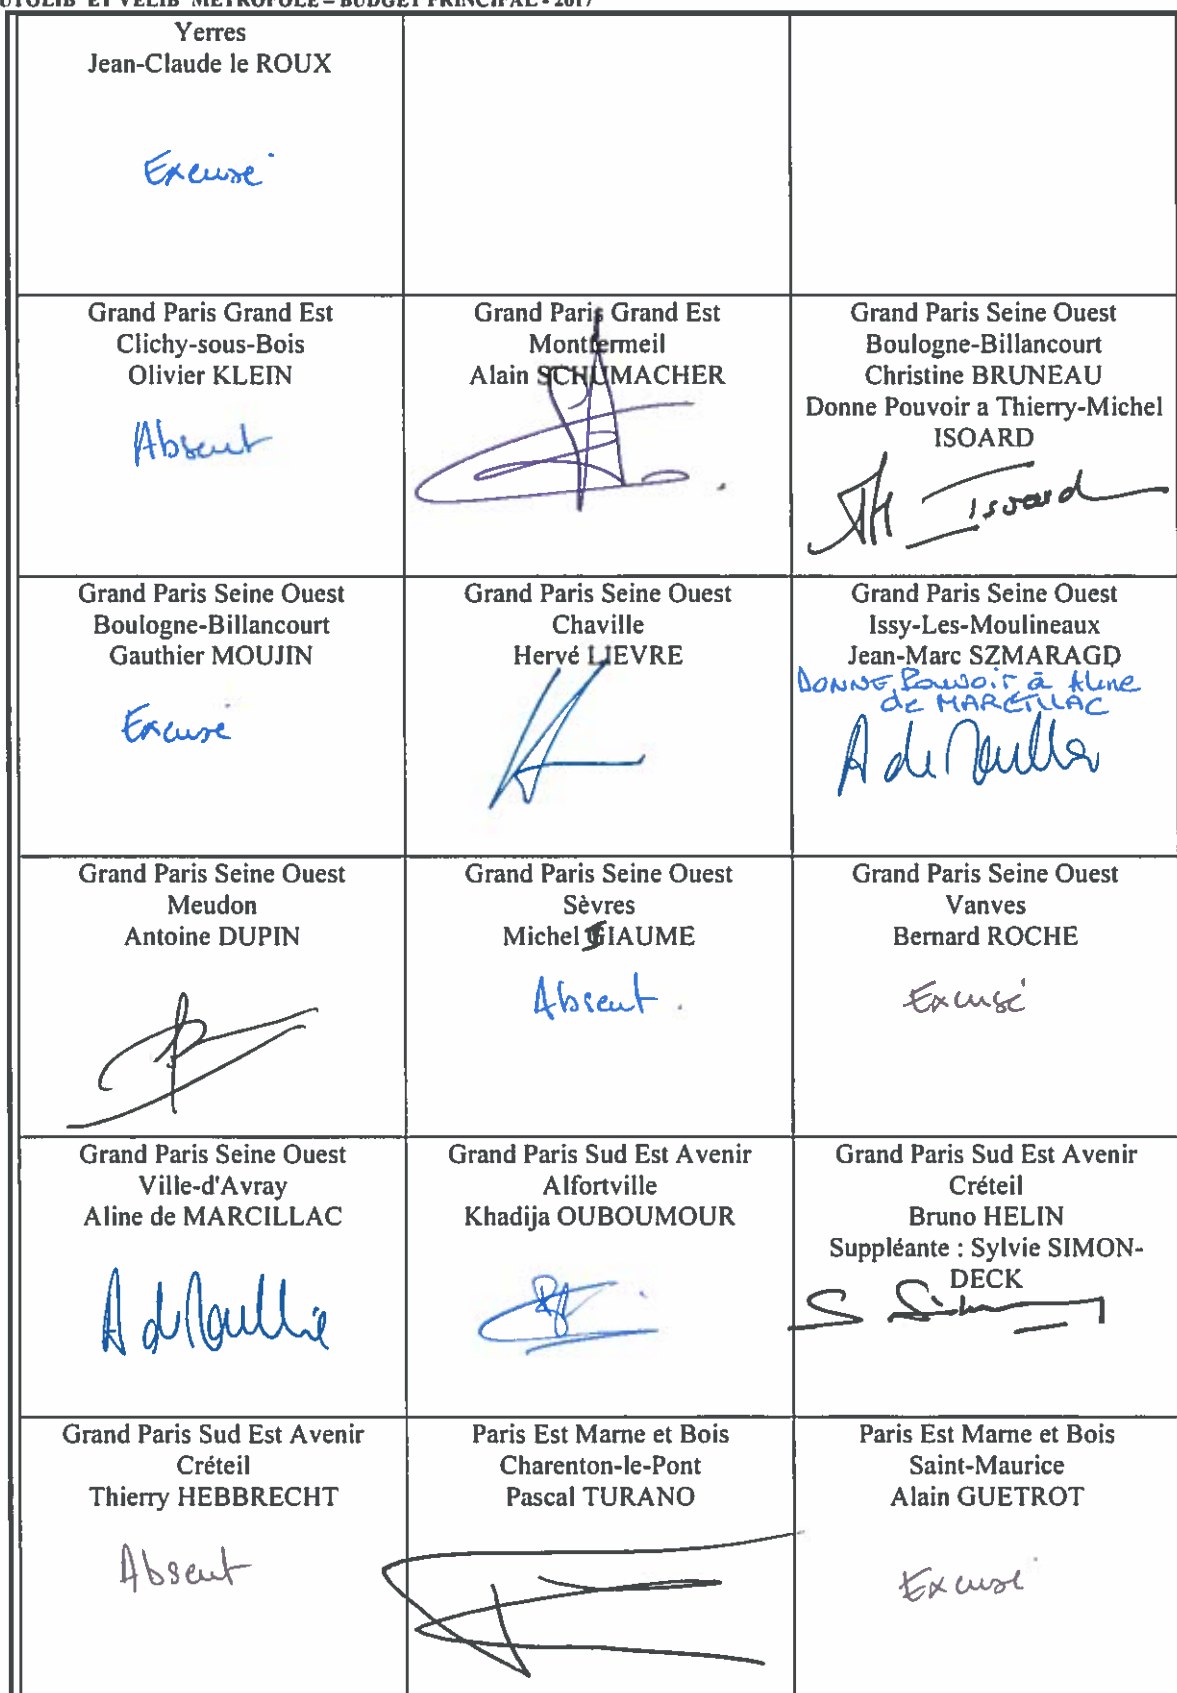 UTOLIB' ET VELIB' METROPOLE – BUDGET PRINCIPAL - 2017
Yerres
Jean-Claude le ROUX
Excusé
Grand Paris Grand Est
Clichy-sous-Bois
Olivier KLEIN
Absent
Grand Paris Grand Est
Montfermeil
Alain SCHUMACHER
Grand Paris Seine Ouest
Boulogne-Billancourt
Christine BRUNEAU
Donne Pouvoir a Thierry-Michel
ISOARD
Isoard
Grand Paris Seine Ouest
Boulogne-Billancourt
Gauthier MOUJIN
Excusé
Grand Paris Seine Ouest
Chaville
Hervé LIEVRE
Grand Paris Seine Ouest
Issy-Les-Moulineaux
Jean-Marc SZMARAGD
DONNE Pouvoir à Aline
de MARCILLAC
Grand Paris Seine Ouest
Meudon
Antoine DUPIN
Grand Paris Seine Ouest
Sèvres
Michel GIAUME
Absent.
Grand Paris Seine Ouest
Vanves
Bernard ROCHE
Excusé
Grand Paris Seine Ouest
Ville-d'Avray
Aline de MARCILLAC
Grand Paris Sud Est Avenir
Alfortville
Khadija OUBOUMOUR
Grand Paris Sud Est Avenir
Créteil
Bruno HELIN
Suppléante : Sylvie SIMON-
DECK
Grand Paris Sud Est Avenir
Créteil
Thierry HEBBRECHT
Absent
Paris Est Marne et Bois
Charenton-le-Pont
Pascal TURANO
Paris Est Marne et Bois
Saint-Maurice
Alain GUETROT
Excusé